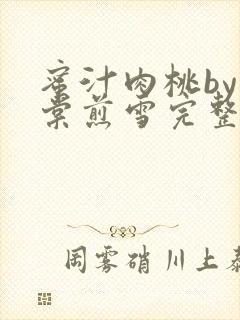 蜜汁肉桃by
棠煎雪完整
周雾硝川上泰